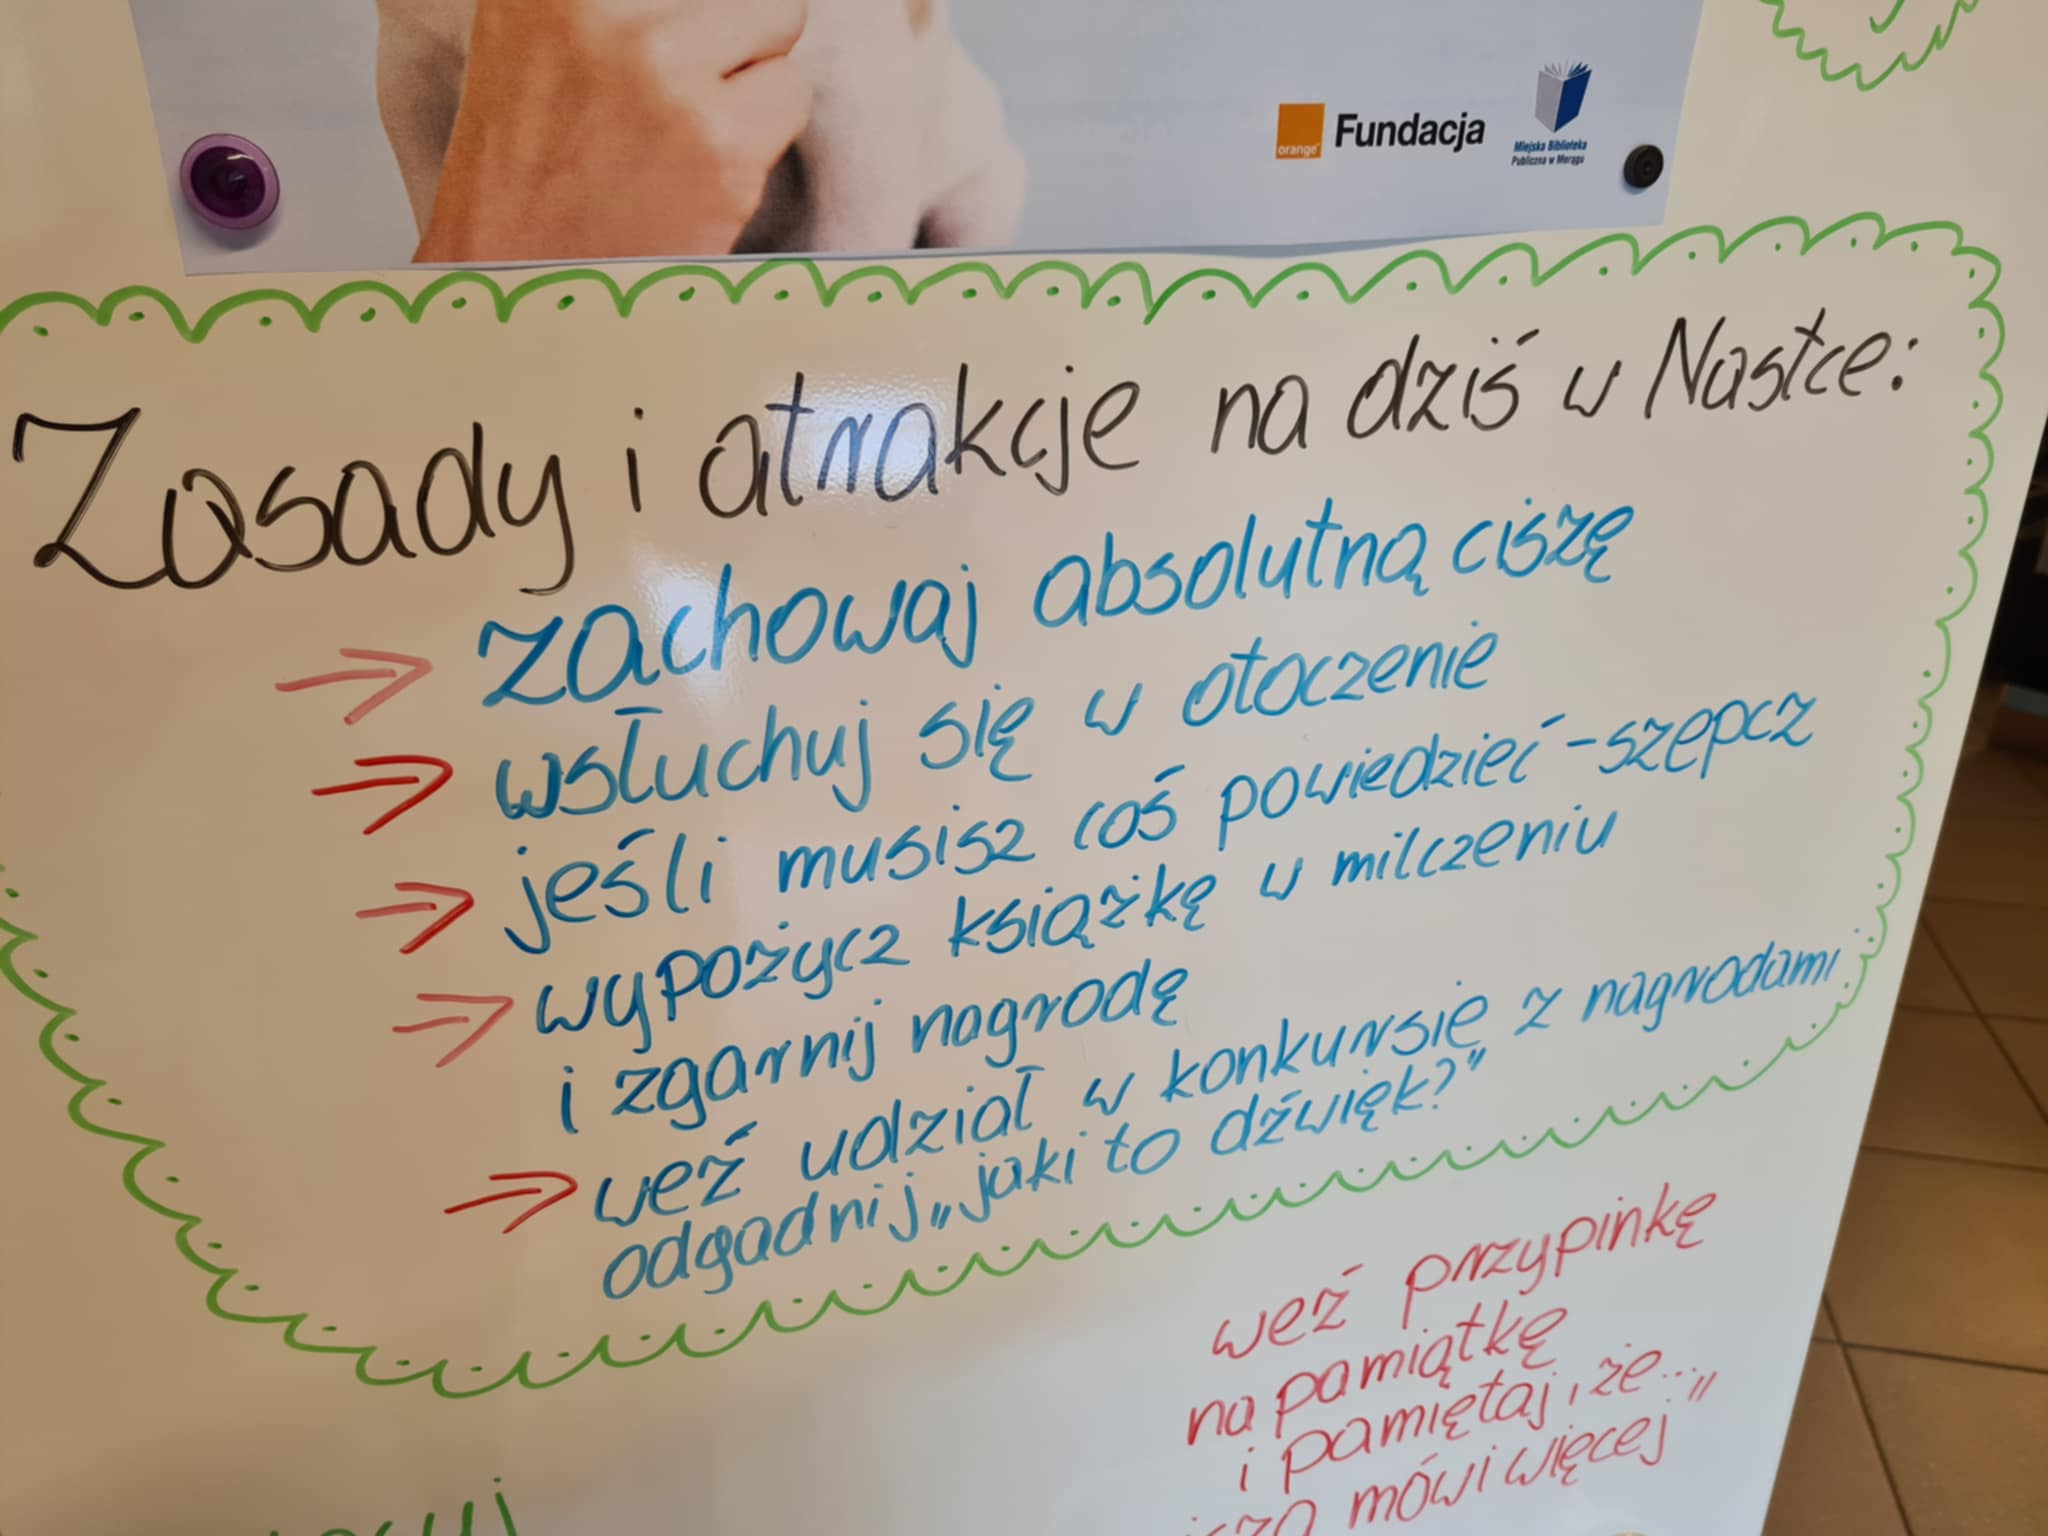 orange Fundacja
Miejska Biblioteka
Publiczna w Morągu
Zasady i atrakcje na dziś w Nastce:
zachowaj absolutną ciszę
wsłuchuj się w otoczenie
jeśli musisz coś powiedzieć - szepcz
wypożycz książkę w milczeniu
i zgarnij nagrodę
weź udział w konkursie z nagrodami
odgadnij „jaki to dźwięk?"
weź przypinkę
na pamiątkę
i pamiętaj, że...„
mówi więcej"